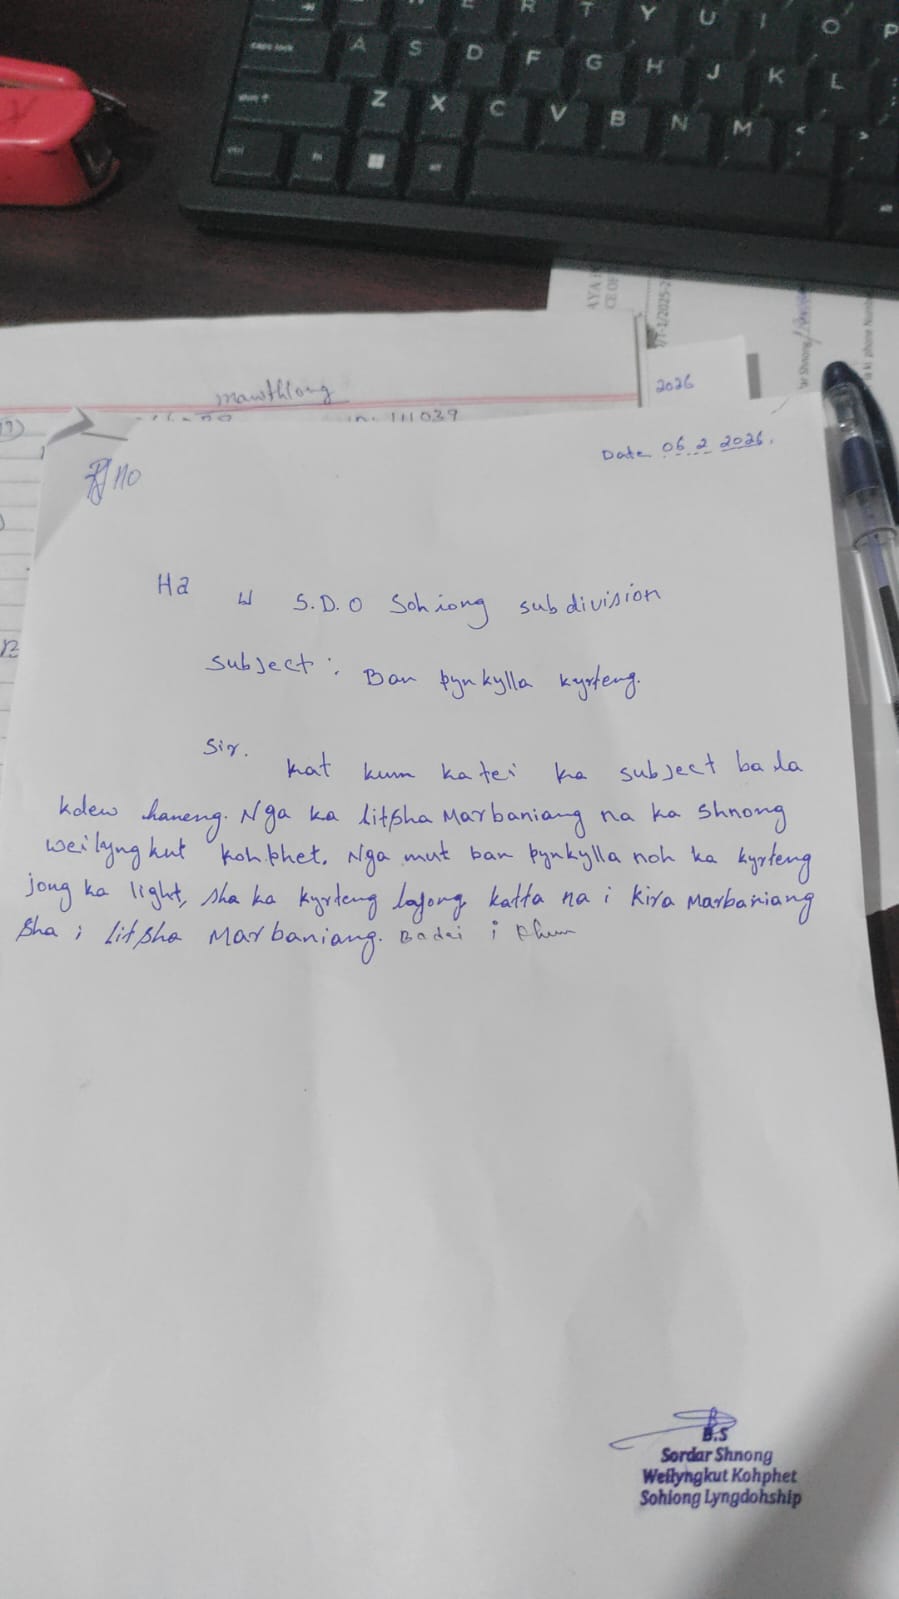 mawthlong
111039
2026
Date 06 2 2026.
no
Ha
S.D.O Sohiong subdivision
Subject: Ban pynkylla kyrteng.
Sir.
Kat kum katei ka subject ba la
kdew haneng. Nga ka litpsha Marbaniang na ka shnong
weilyngkut kohphet. Nga mut ban pynkylla noh ka kyrteng
jong ka light, sha ka kyrteng lajong katta na i Kira Marbaniang
sha i litpsha Marbaniang. Badei i
B.S
Sordar Shnong
Weilyngkut Kohphet
Sohiong Lyngdohship